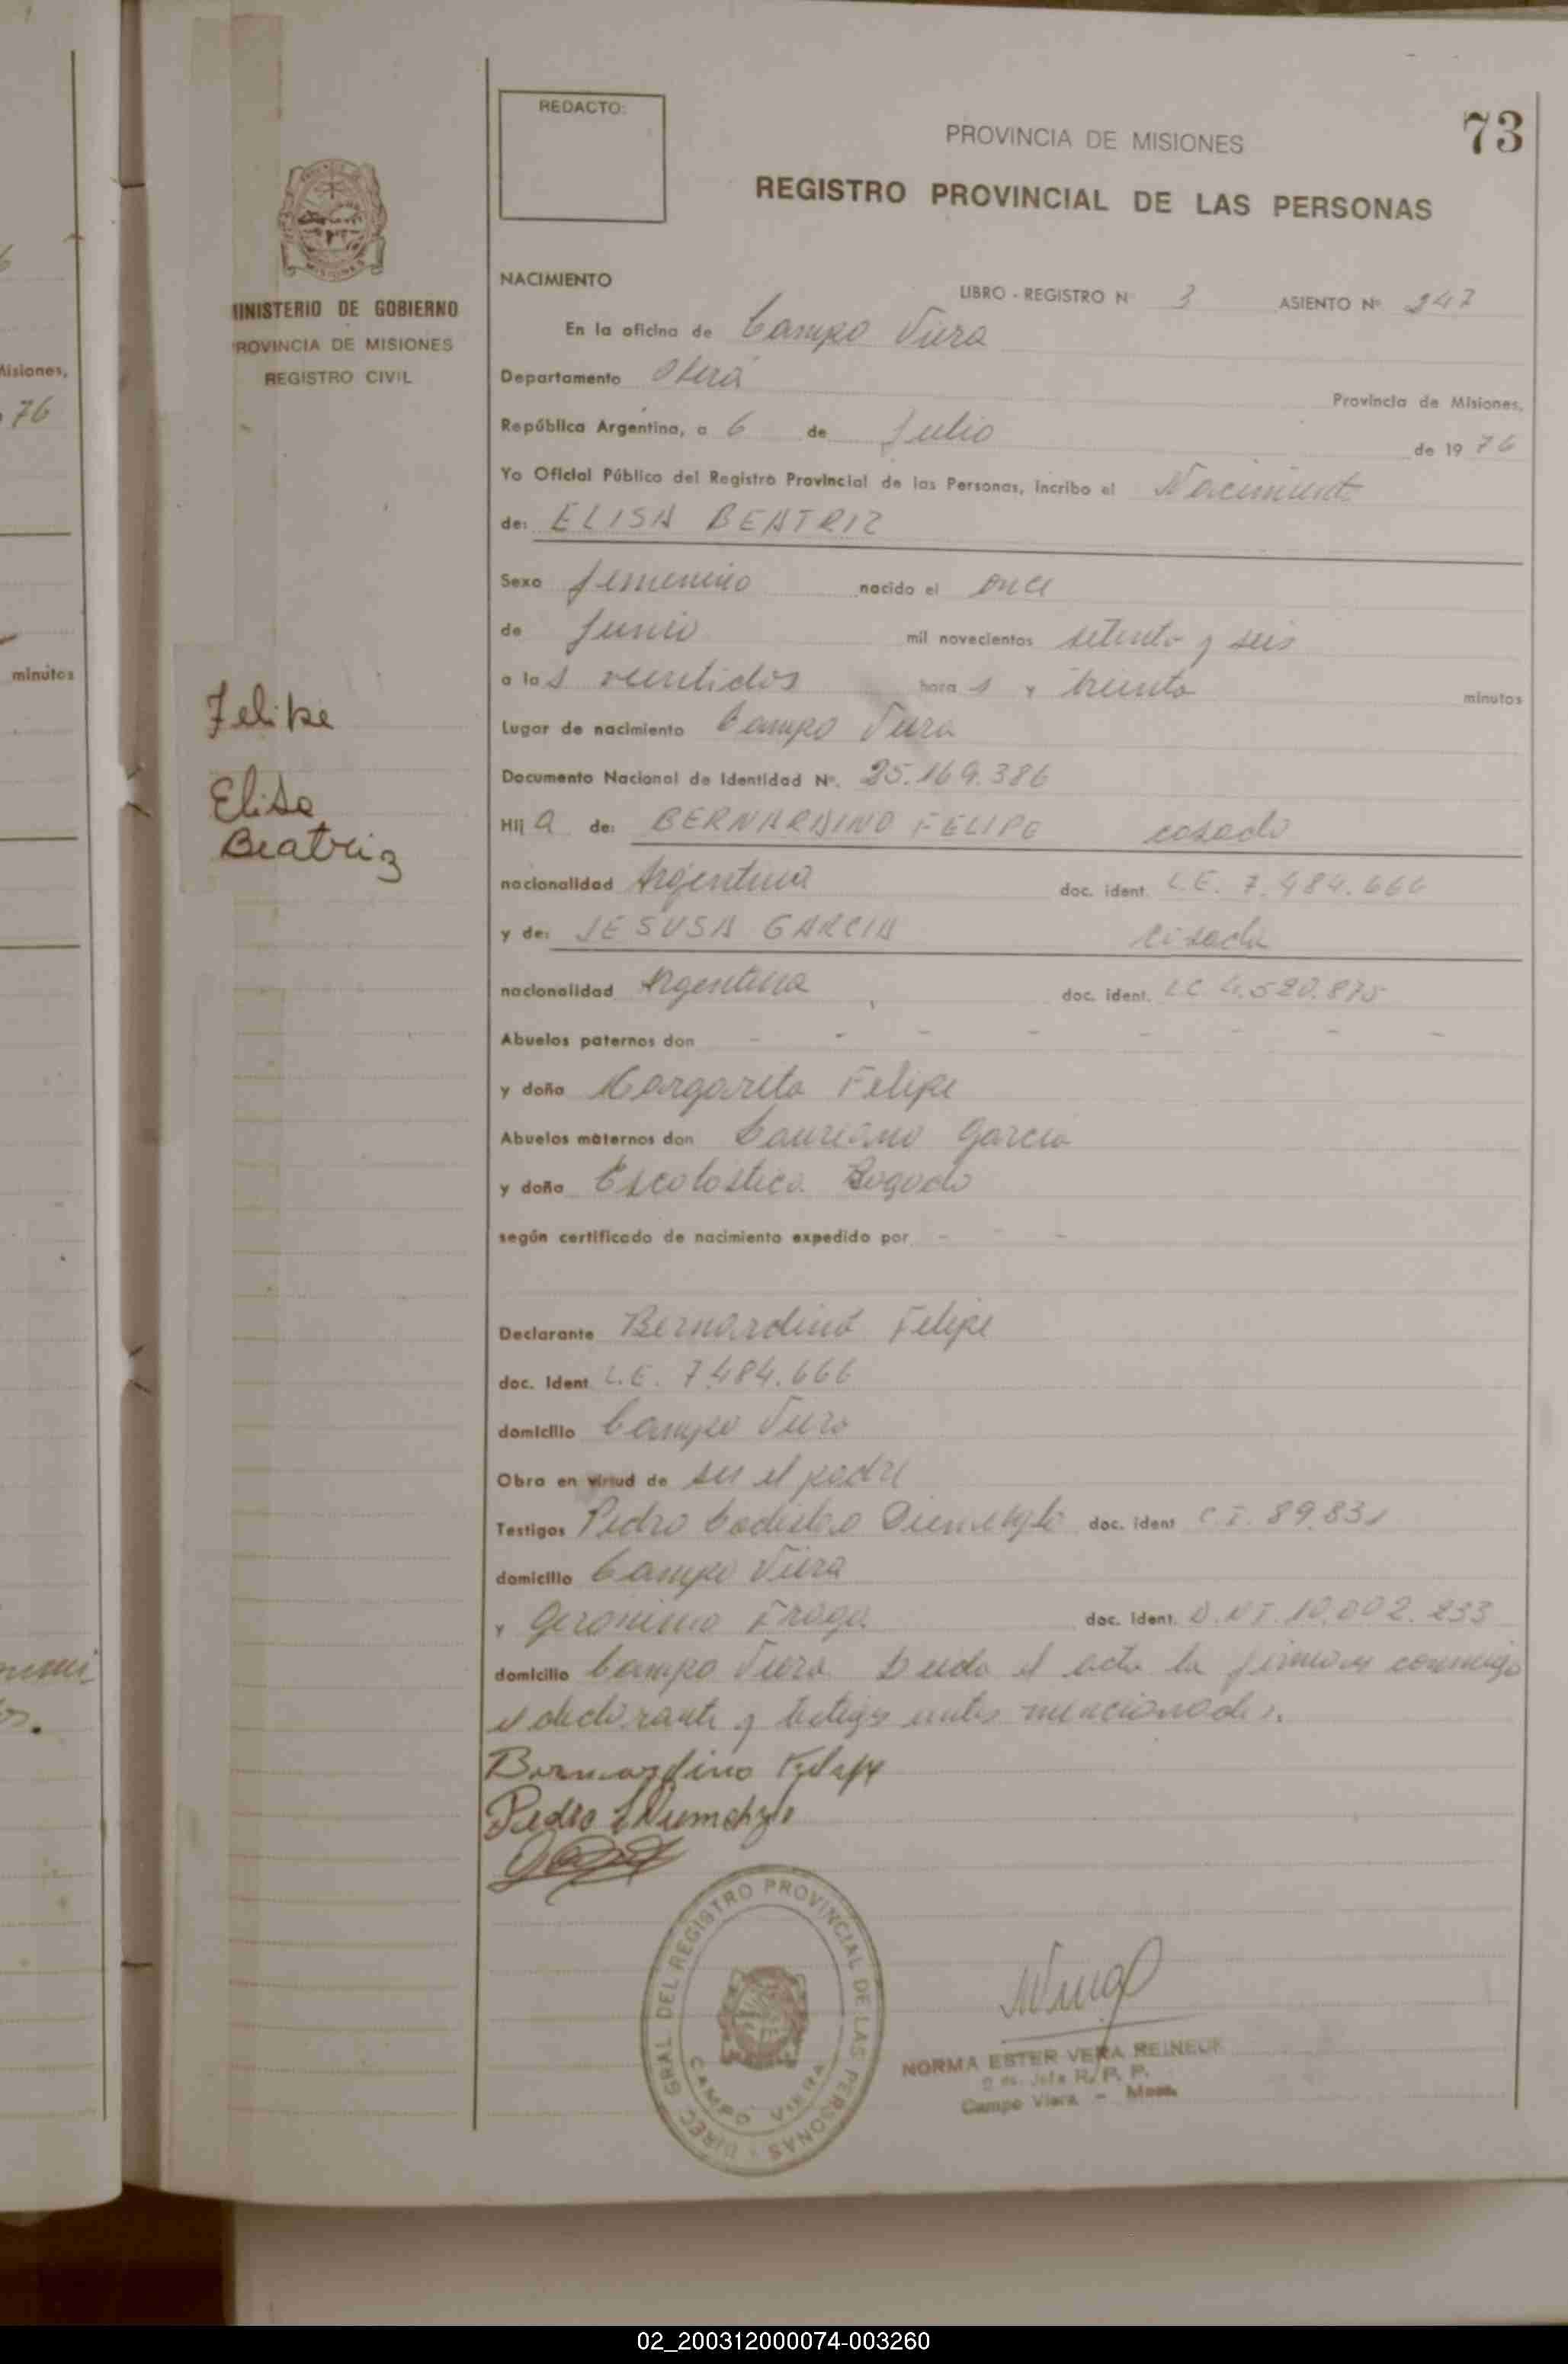 REDACTO:
PROVINCIA DE MISIONES
73
REGISTRO PROVINCIAL DE LAS PERSONAS
MINISTERIO DE GOBIERNO
PROVINCIA DE MISIONES
REGISTRO CIVIL
NACIMIENTO
LIBRO - REGISTRO N° 3 ASIENTO N° 247
En la oficina de Campo Viera
Departamento Oberá
Provincia de Misiones,
República Argentina, a 6 de Julio de 1976
Yo Oficial Público del Registro Provincial de las Personas, incribo el Nacimiento
de: ELISA BEATRIZ
Sexo femenino nacido el once
de Junio mil novecientos setenta y seis
a las veintidos horas y treinta minutos
Lugar de nacimiento Campo Viera
Documento Nacional de Identidad N°. 25.169.386
Hija de: BERNARDINO FELIPE casado
nacionalidad Argentina doc. ident. L.E. 7.484.666
y de: JESUSA GARCIA casada
nacionalidad Argentina doc. ident. LC 4.520.875
Abuelos paternos don - - - - - - -
y doña Margarita Felipe
Abuelos maternos don Laureano Garcia
y doña Escolastica Bogado
según certificado de nacimiento expedido por - -
Declarante Bernardino Felipe
doc. Ident L.E. 7.484.666
domicilio Campo Viera
Obra en virtud de ser el padre
Testigos Pedro Ladislao doc. ident C.I. 89.831
domicilio Campo Viera
y Geronimo Fraga doc. ident. D.N.I. 10.002.233
domicilio Campo Viera Leida el acta la firman conmigo
el declarante y testigos antes mencionados.
Bernardino Felipe
Pedro
Felipe
Elisa
Beatriz
DIREC GRAL DEL REGISTRO PROVINCIAL DE LAS PERSONAS
CAMPO VIERA
NORMA ESTER VERA REINECK
Jefe R. P. P.
Campo Viera - Mnes.
Misiones,
76
minutos
02_200312000074-003260